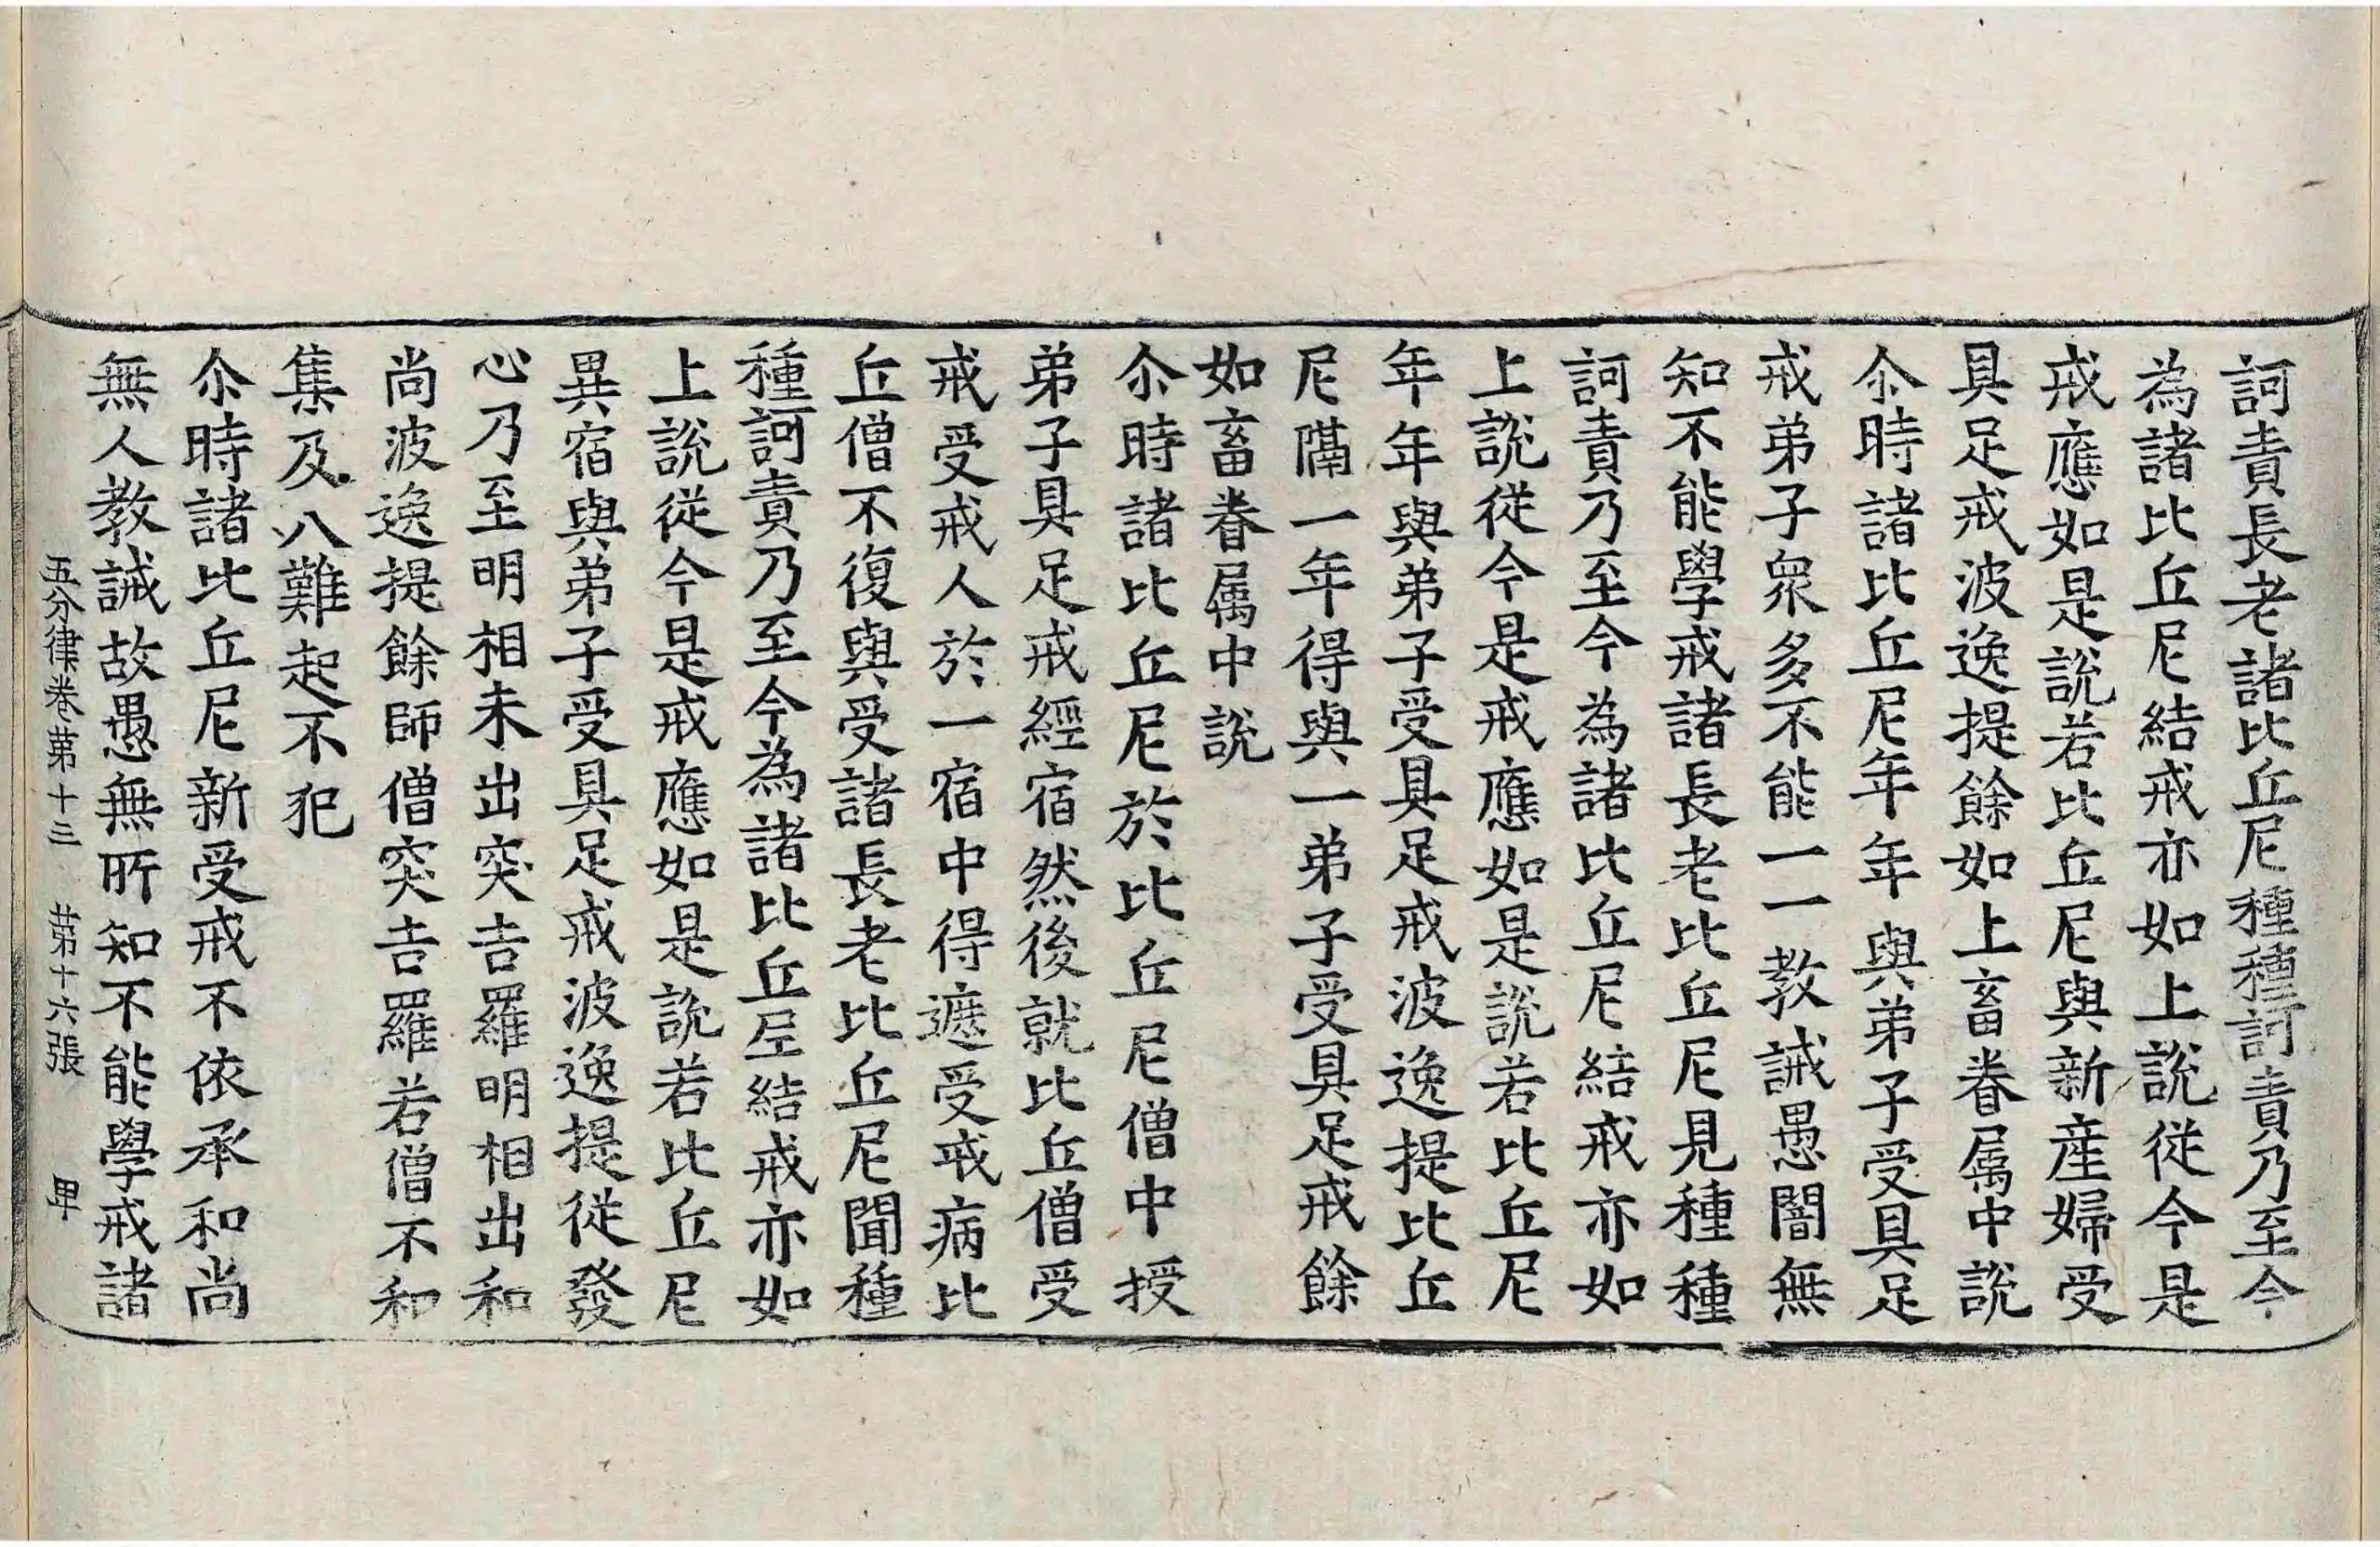 訶責長老諸比丘尼種種訶責乃至今
為諸比丘尼結戒亦如上說從今是
戒應如是說若比丘尼與新產婦受
具足戒波逸提餘如上畜眷属中說
尒時諸比丘尼年年與弟子受具足
戒弟子衆多不能一一教誡愚闇無
知不能學戒諸長老比丘尼見種種
訶責乃至今為諸比丘尼結戒亦如
上說從今是戒應如是說若比丘尼
年年與弟子受具足戒波逸提比丘
尼隔一年得與一弟子受具足戒餘
如畜眷属中說
尒時諸比丘尼於比丘尼僧中授
弟子具足戒經宿然後就比丘僧受
戒受戒人於一宿中得遮受戒病比
丘僧不復與受諸長老比丘尼聞種
種訶責乃至今為諸比丘尼結戒亦如
上說從今是戒應如是說若比丘尼
異宿與弟子受具足戒波逸提從發
心乃至明相未出突吉羅明相出和
尚波逸提餘師僧突吉羅若僧不和
集及八難起不犯
尒時諸比丘尼新受戒不依承和尚
無人教誡故愚無所知不能學戒諸
五分律卷第十三　第十六張　甲